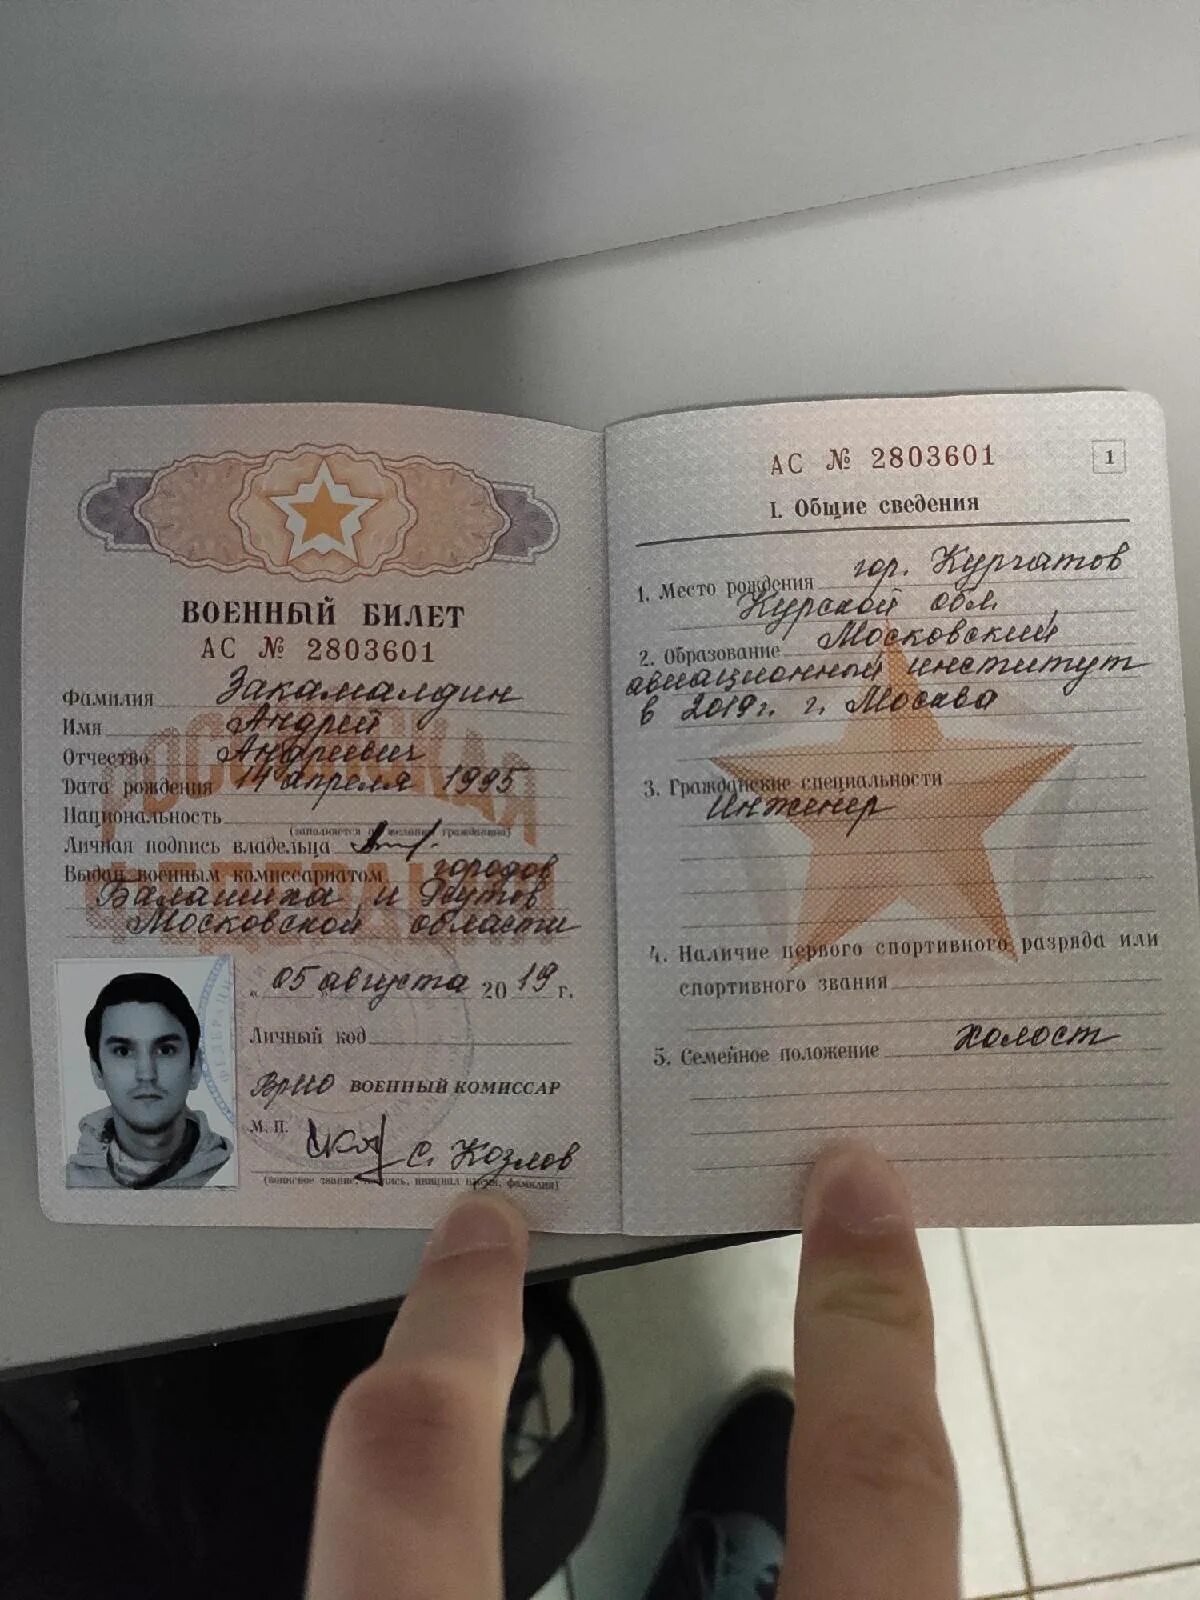 ВОЕННЫЙ БИЛЕТ
АС № 2803601
Фамилия Закамалдин
Имя Андрей
Отчество Андреевич
Дата рождения 14 апреля 1995
Национальность
(заполняется по желанию гражданина)
Личная подпись владельца
Выдан военным комиссариатом городов
Балашиха и Реутов
Московской области
„05" августа 2019 г.
Личный код
Врио ВОЕННЫЙ КОМИССАР
М. П.
С. Козлов
(воинское звание, подпись, инициал имени, фамилия)
РОССИЙСКАЯ
ФЕДЕРАЦИЯ
АС № 2803601
1
I. Общие сведения
1. Место рождения гор. Курчатов
Курской обл.
2. Образование Московский
авиационный институт
в 2019г. г. Москва
3. Гражданские специальности
Инженер
4. Наличие первого спортивного разряда или
спортивного звания
5. Семейное положение холост